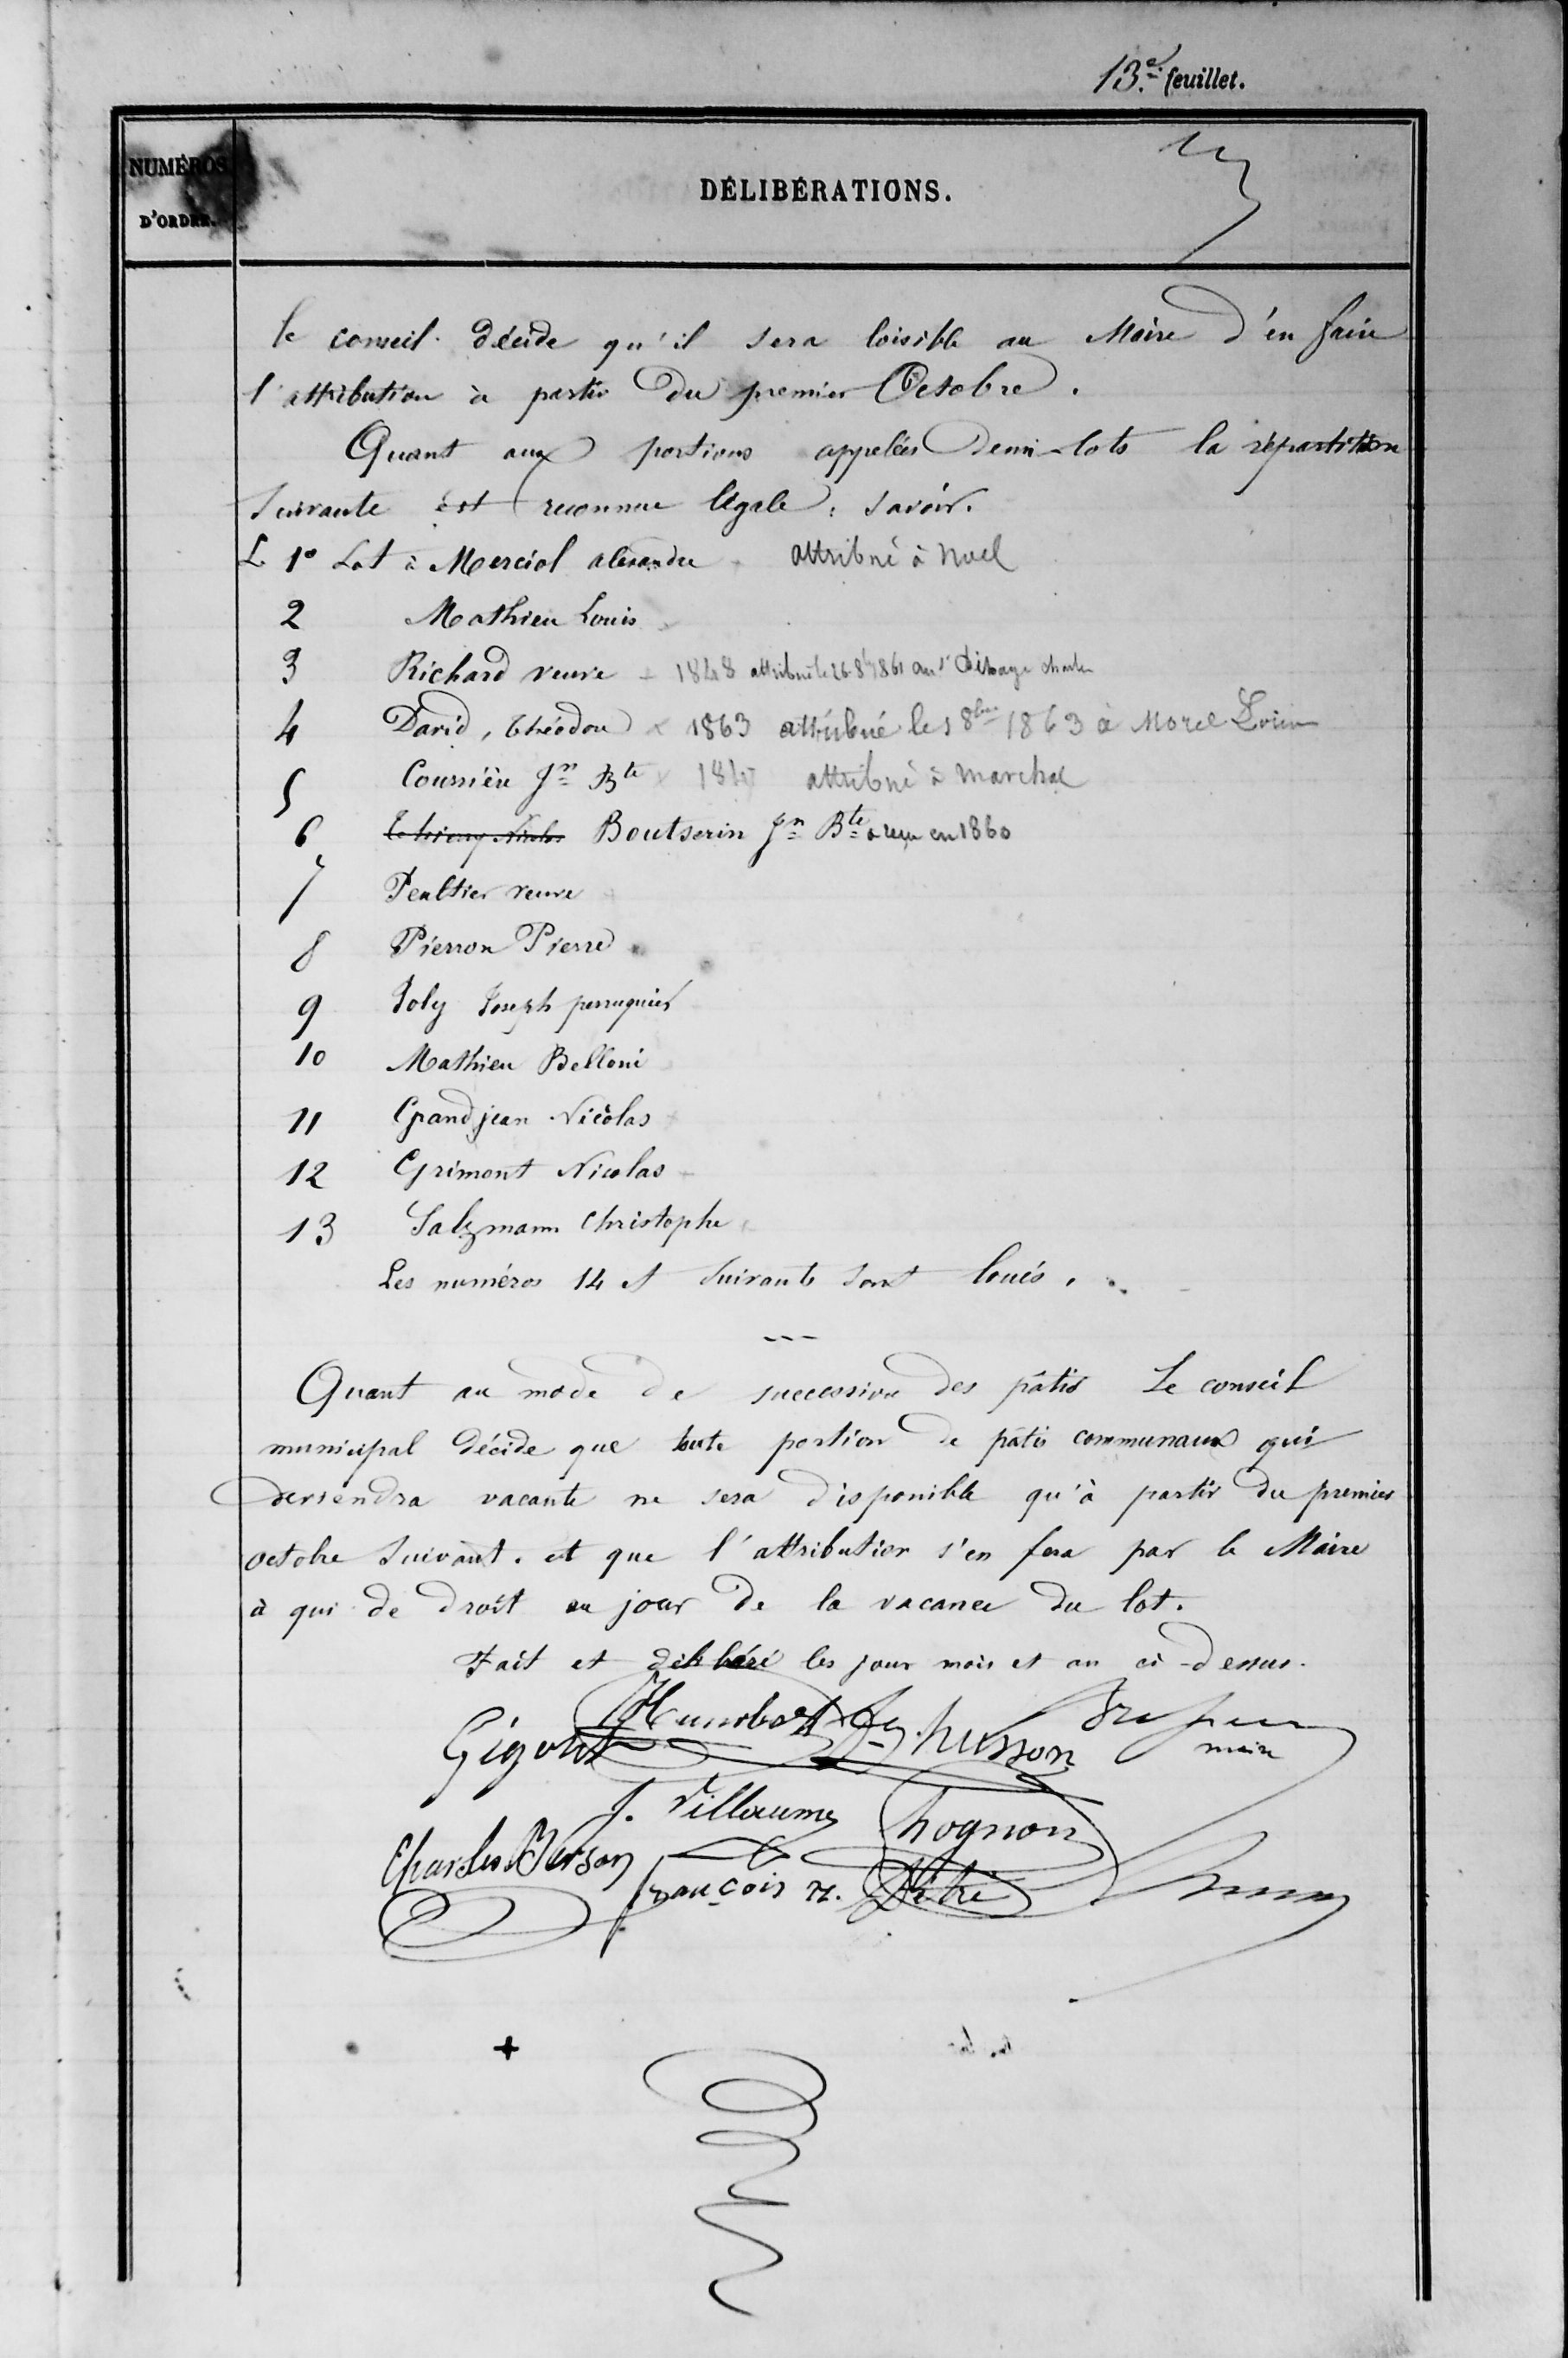 13.e feuillet.
NUMÉROS D'ORDRE.
DÉLIBÉRATIONS.
le conseil décide qu'il sera loisible au Maire d'en faire
l'attribution à partir du premier Octobre.
Quant aux portions appelées demi-lots la répartition
suivante est reconnue légale, savoir.
L 1° Lot à Merciol alexandre attribué à Noel
2 Mathieu Louis
3 Richard veuve 1848 attribué le 26 8bre 1861 au sr charles
4 David, théodore 1863 attribué le 1 8bre 1863 à Morel
5 Coursière Jn Bte 184 attribué à Marchal
6 Boutserin Jn Bte a reçu en 1860
7 Peultier veuve
8 Pierron Pierre
9 Joly Joseph perruquier
10 Mathieu Belloni
11 Grandjean Nicolas
12 Grimont Nicolas
13 Salzmann Christophe
Les numéros 14 et suivants sont loués.
Quant au mode de succession des pâtis Le conseil
municipal décide que toute portion de pâtis communaux qui
deviendra vacante ne sera disponible qu'à partir du premier
octobre suivant. et que l'attribution s'en fera par le Maire
à qui de droit au jour de la vacance du lot.
Fait et délibéré les jour mois et an ci-dessus.
Humbert
Gigout husson maire
J. Villaume hognon
Charles Berson
françois n.